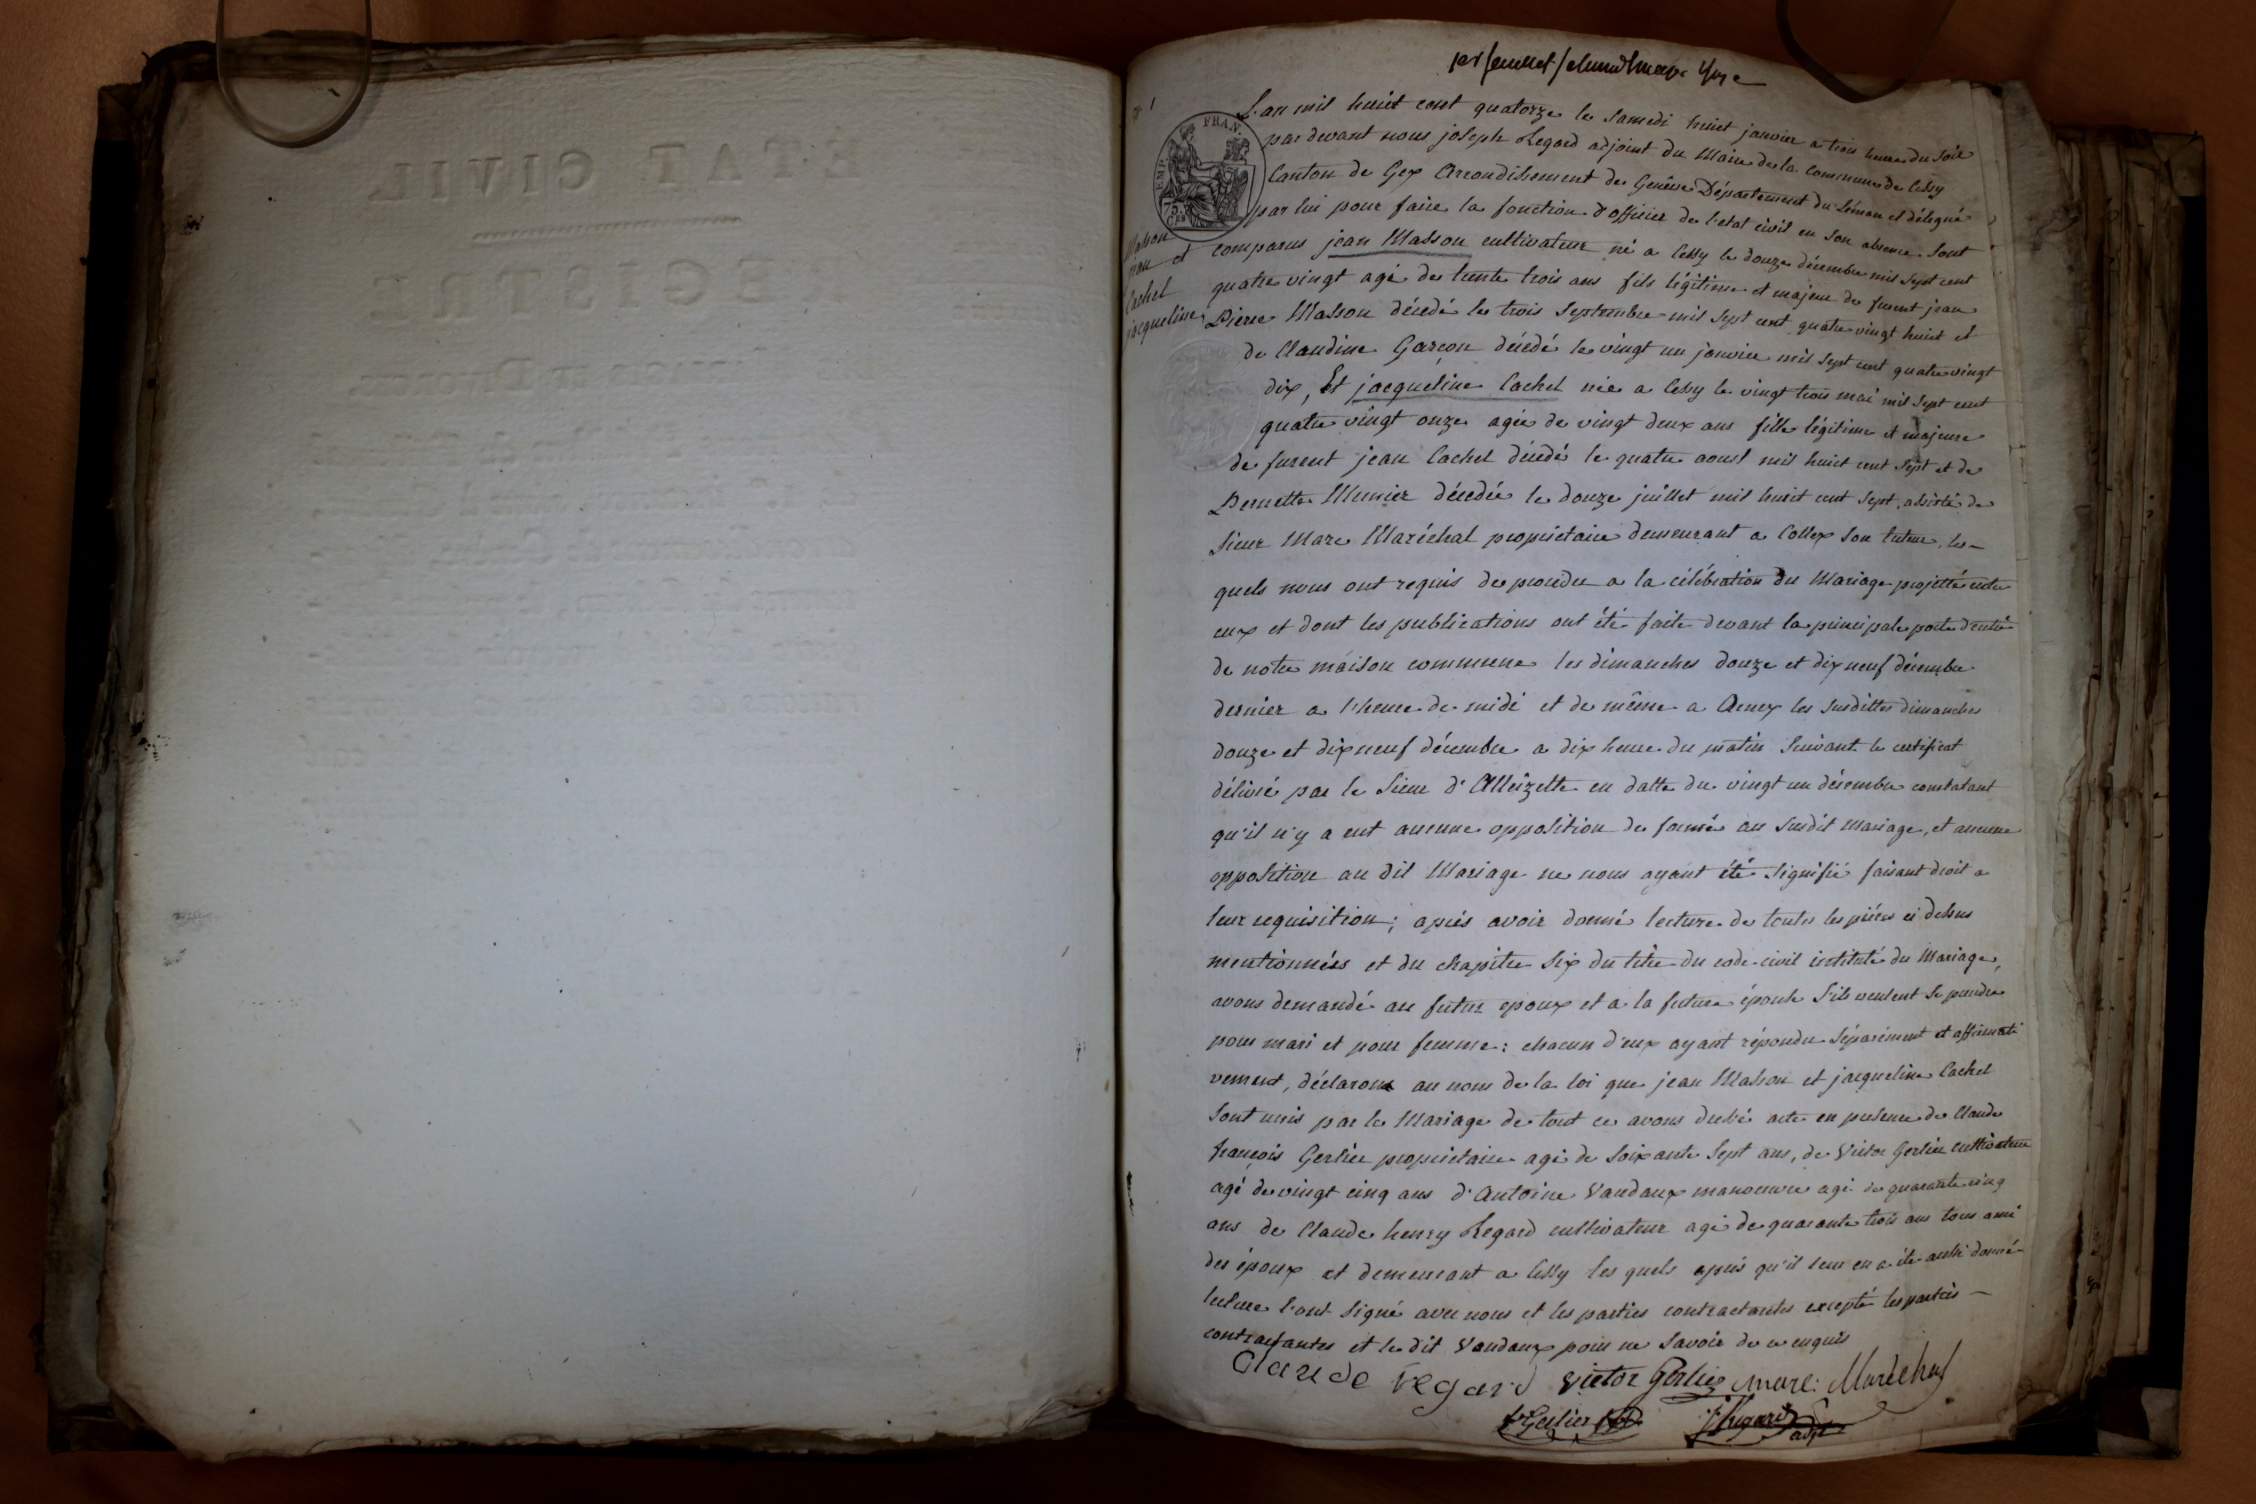 N° 1
EMP. FRAN.
75 Ces
Masson
jean et
Cachet
jacqueline
L'an mil huict cent quatorze le samedi huict janvier a trois heure du soir
par devant nous joseph Regard adjoint du Maire de la Commune de Cessy
Canton de Gex Arrondissement de Genêve Département du Léman et délégué
par lui pour faire la fonction d'officier de l'etat civil en son absence sont
comparus jean Masson cultivateur né a Cessy le douze décembre mil sept cent
quatre vingt agé de trente trois ans fils légitime et majeur de furent jean
Pierre Masson décedé le trois septembre mil sept cent quatre vingt huict et
de Claudine Garçon décedé le vingt un janvier mil sept cent quatre vingt
dix, Et jacqueline Cachet née a Cessy le vingt trois mai mil sept cent
quatre vingt onze agée de vingt deux ans fille légitime et majeure
de furent jean Cachet décedé le quatre aoust mil huict cent sept et de
Pernette Munier décedée le douze juillet mil huict cent sept, assistée de
sieur Marc Maréchal proprietaire demeurant a Collex son tuteur, les-
quels nous ont requis de proceder a la célébration du Mariage projetté entre
eux et dont les publications ont été faite devant la principale porte d'entrée
de notre maison commune les dimanches douze et dix neuf décembre
dernier a l'heure de midi et de même a Ornex les susdittes dimanches
douze et dix neuf décembre a dix heure du matin suivant le certificat
délivré par le sieur d'Alleizette en datte du vingt un décembre constatant
qu'il n'y a eut aucune opposition de formé au susdit mariage, et aucune
opposition au dit Mariage ne nous ayant été signifié faisant droit a
leur requisition; aprés avoir donné lecture de toutes les piéces ci dessus
mentionnées et du chapitre six du titre du code civil intitulé du Mariage,
avons demandé au futur epoux et a la future épouse s'ils veulent se prendre
pour mari et pour femme: chacun d'eux ayant répondu séparément et affirmati
vement, déclarons au nom de la loi que jean Masson et jacqueline Cachet
sont unis par le Mariage de tout ce avons dressé acte en presence de Claude
françois Gerlier proprietaire agé de soixante sept ans, de Victor Gerlier cultivateur
agé de vingt cinq ans d'Antoine Vandaux manoeuvre agé de quarante cinq
ans de Claude henry Regard cultivateur agé de quarante trois ans tous ami
des époux et demeurant a Cessy les quels aprés qu'il leur en a été aussi donné
lecture l'ont signé avec nous et les parties contractantes excepté les parties
contractantes et le dit Vandaux pour ne savoir de ce enquis
Claude regard victor Gerlier marc: Maréchal
f: Gerlier J: Regard
adjt